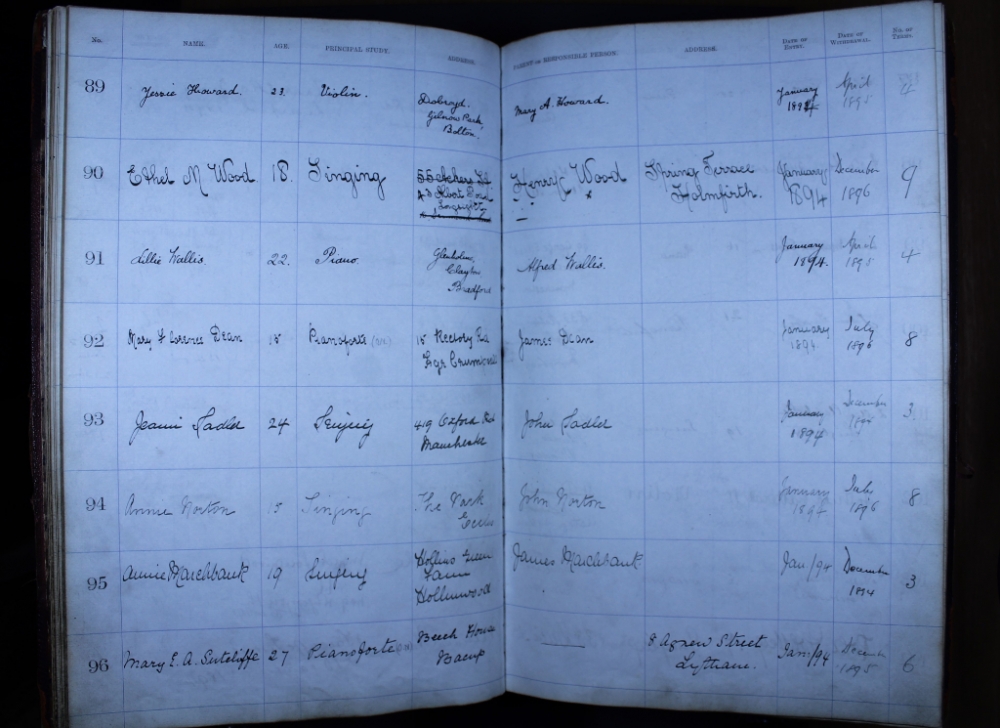 No. NAME. AGE. PRINCIPAL STUDY. ADDRESS. PARENT OR RESPONSIBLE PERSON. ADDRESS. DATE OF ENTRY. DATE OF WITHDRAWAL. No. OF TERMS.
89 Jessie Howard. 23. Violin. Mary A. Howard. January 1894 April 1895
Gilnow Park,
Bolton.
90 Ethel M Wood 18. Singing Henry Wood Spring Terrace Holmfirth. January 1894 December 1896 9
91 Lillie Wallis. 22. Piano. Glenholm, Alfred Wallis. January 1894. April 1895 4
Clayton
Bradford
92 Mary Florence Dean 15 Pianoforte 15 Rectory Rd James Dean January 1894 July 1896 8
Crumpsall
93 Jeanie Sadler 24 Singing 419 Oxford Rd John Sadler January 1894 December 1894 3
Manchester
94 Annie Norton Singing The Park John Norton January July 1896 8
Eccles
95 Annie Marchbank 19 Singing Hollins Green James Marchbank Jan./94 December 1894 3
Farm
Hollinwood
96 Mary E. A. Sutcliffe 27 Pianoforte Beech House Agnew Street Jan./94 December 1895 6
Bacup Lytham.